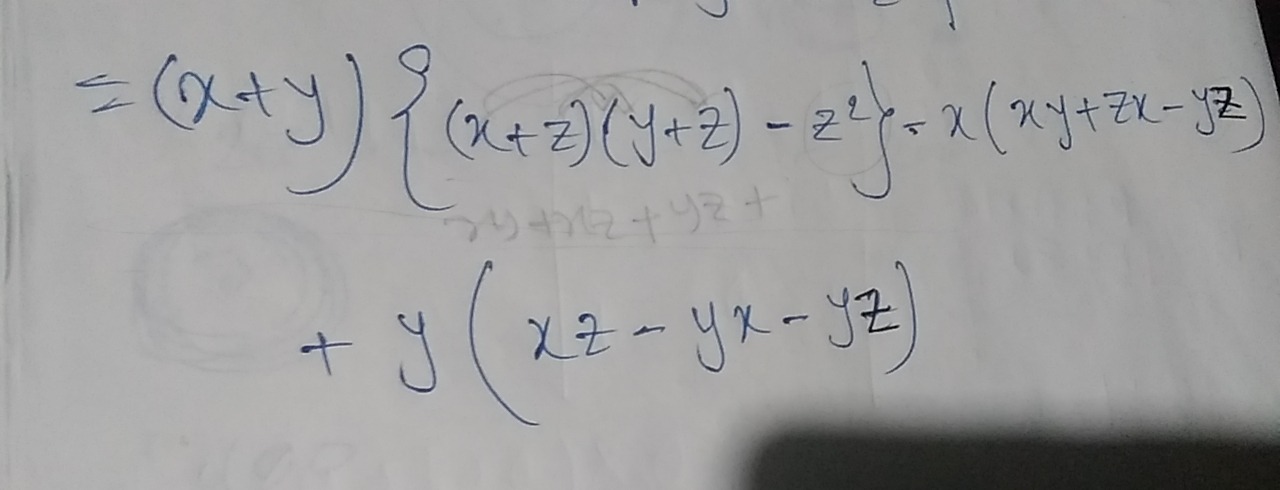 = (x+y) {(x+z)(y+z) - z²} - x(xy+zx-yz)
xy+xz+yz+
+ y(xz-yx-yz)